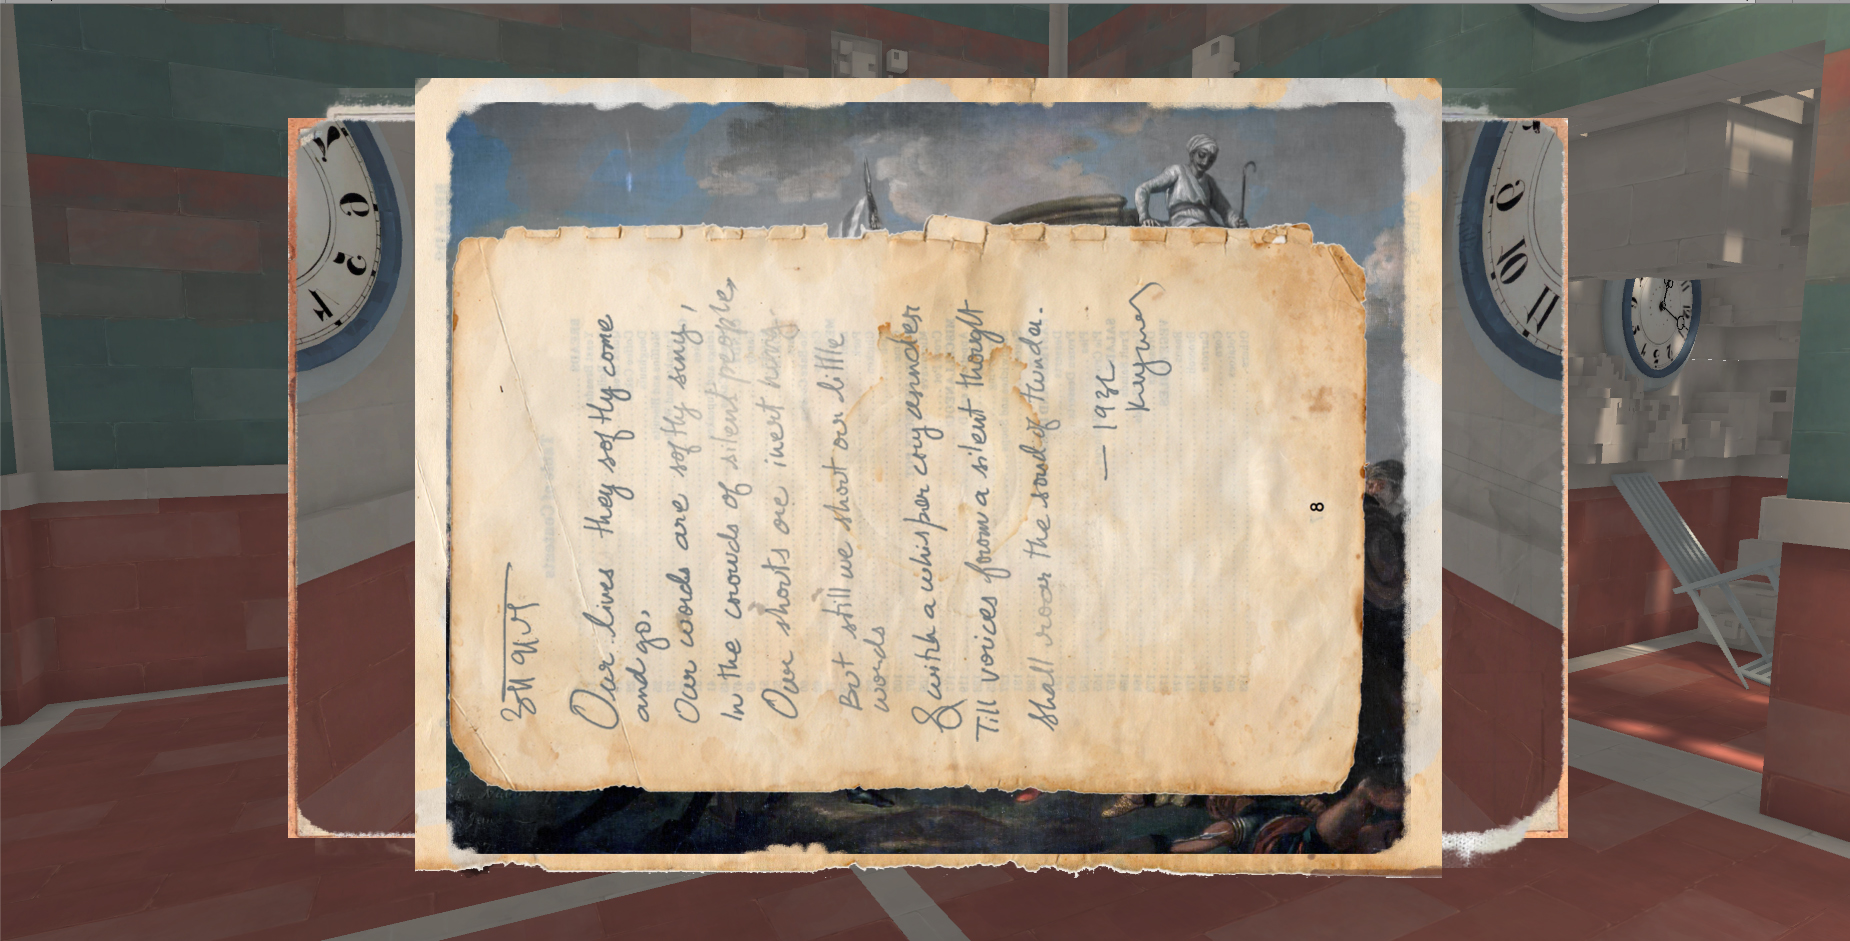 Our lives they softly come
and go,
Our words are softly sung,
In the crowds of silent people,
Our shouts are inert hung.
But still we shout our little
words
& with a whisper cry asunder
Till voices from a silent thought
Shall roar the sound of thunder.
8